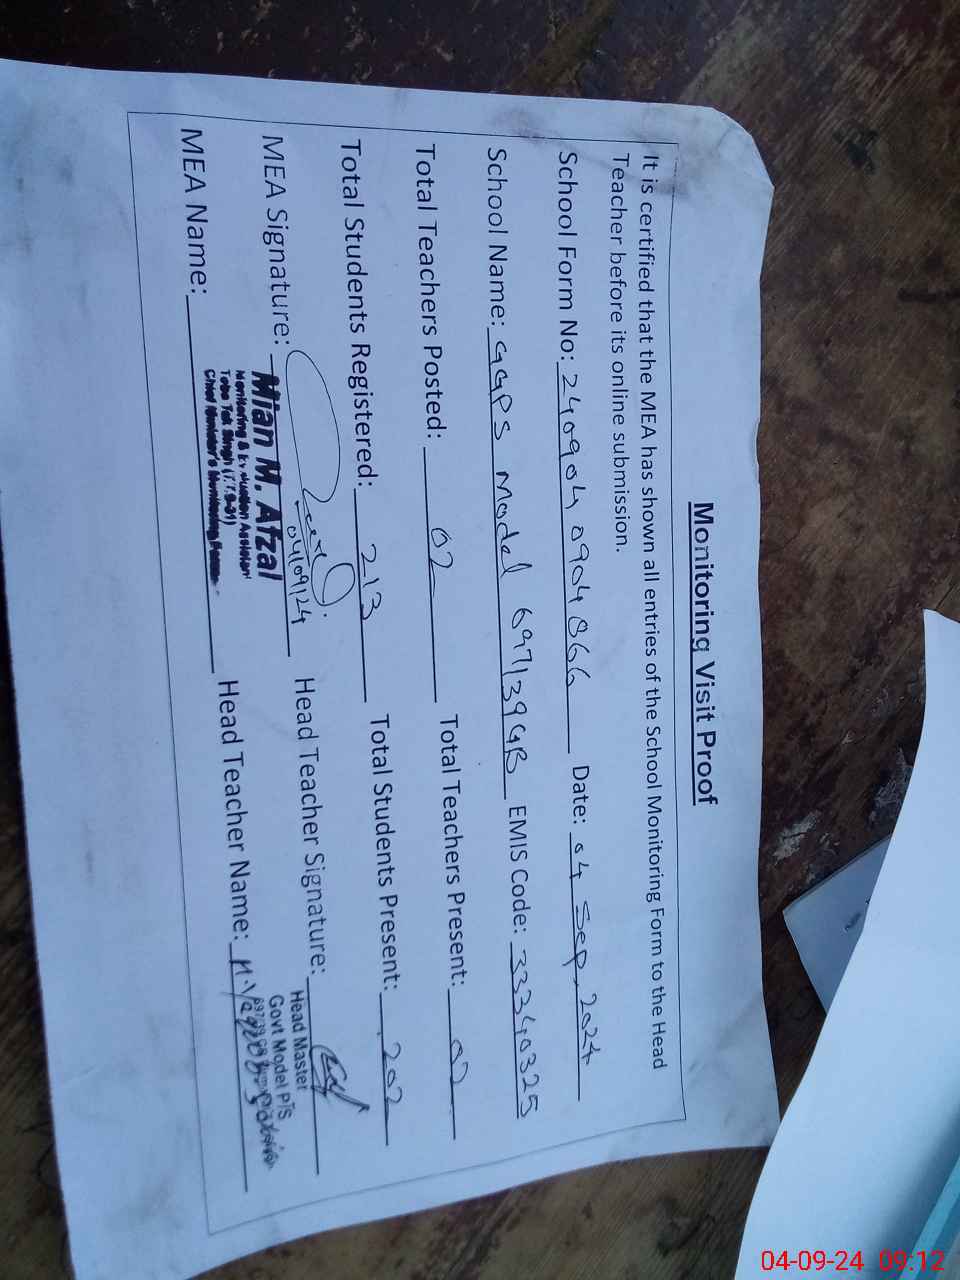 Monitoring Visit Proof
It is certified that the MEA has shown all entries of the School Monitoring Form to the Head
Teacher before its online submission.
School Form No: 240904 0904866 Date: 04 Sep, 2024
School Name: GGPS Model 697/39GB EMIS Code: 33340325
Total Teachers Posted: 02 Total Teachers Present: 02
Total Students Registered: 213 Total Students Present: 202
MEA Signature: Head Teacher Signature:
04/09/24
Mian M. Afzal
Monitoring & Evaluation Assistant
Toba Tek Singh (T.T.S-31)
Chief Minister's Monitoring
Head Master
Govt Model P/S
MEA Name: Head Teacher Name: M. Yaqoob
04-09-24 09:12